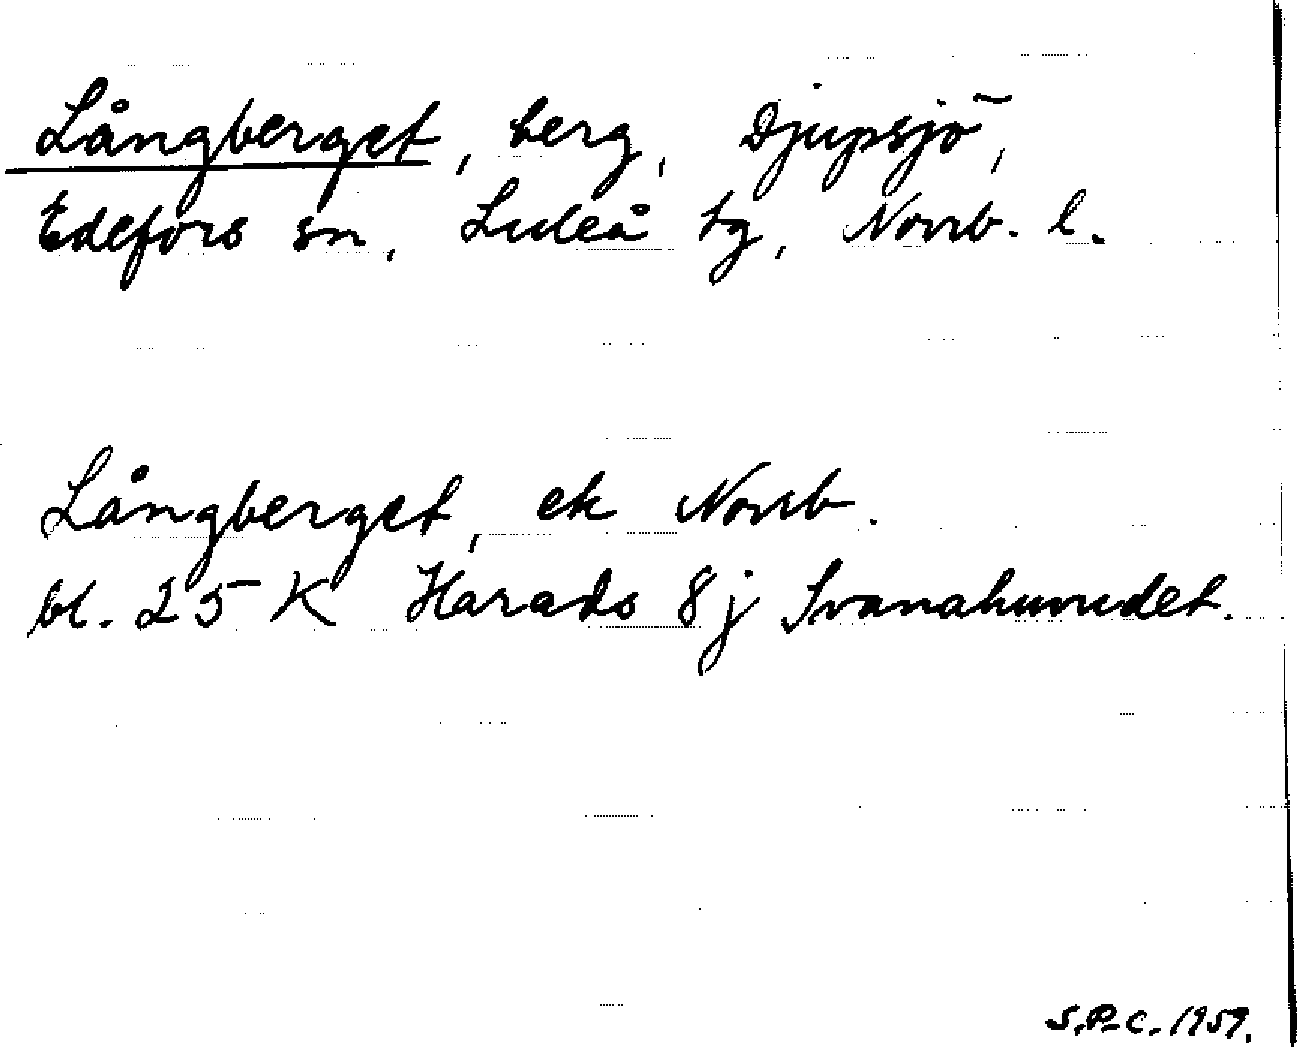 Långberget, berg, Djupsjö,
Edefors sn, Luleå tg, Norrb. l.
Långberget, ek Norrb.
bl. 25 K Harads 8 j Svanahuvudet.
S.P.C. 1959.